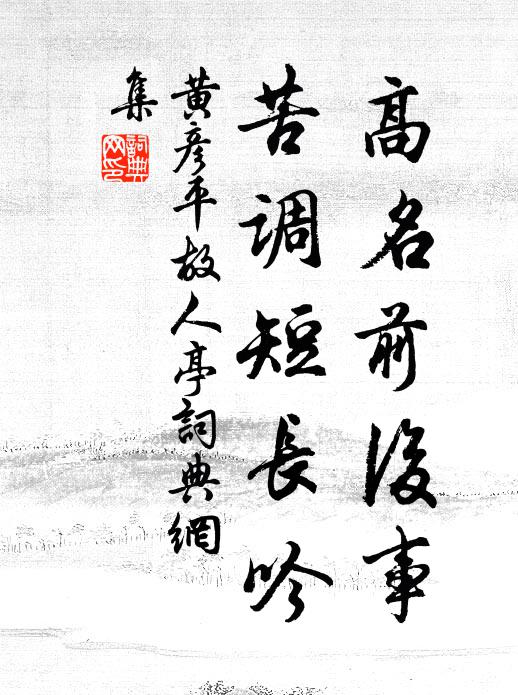 高名前後事
苦調短長吟
黄彦平故人亭詞典網
集
詞典
网印